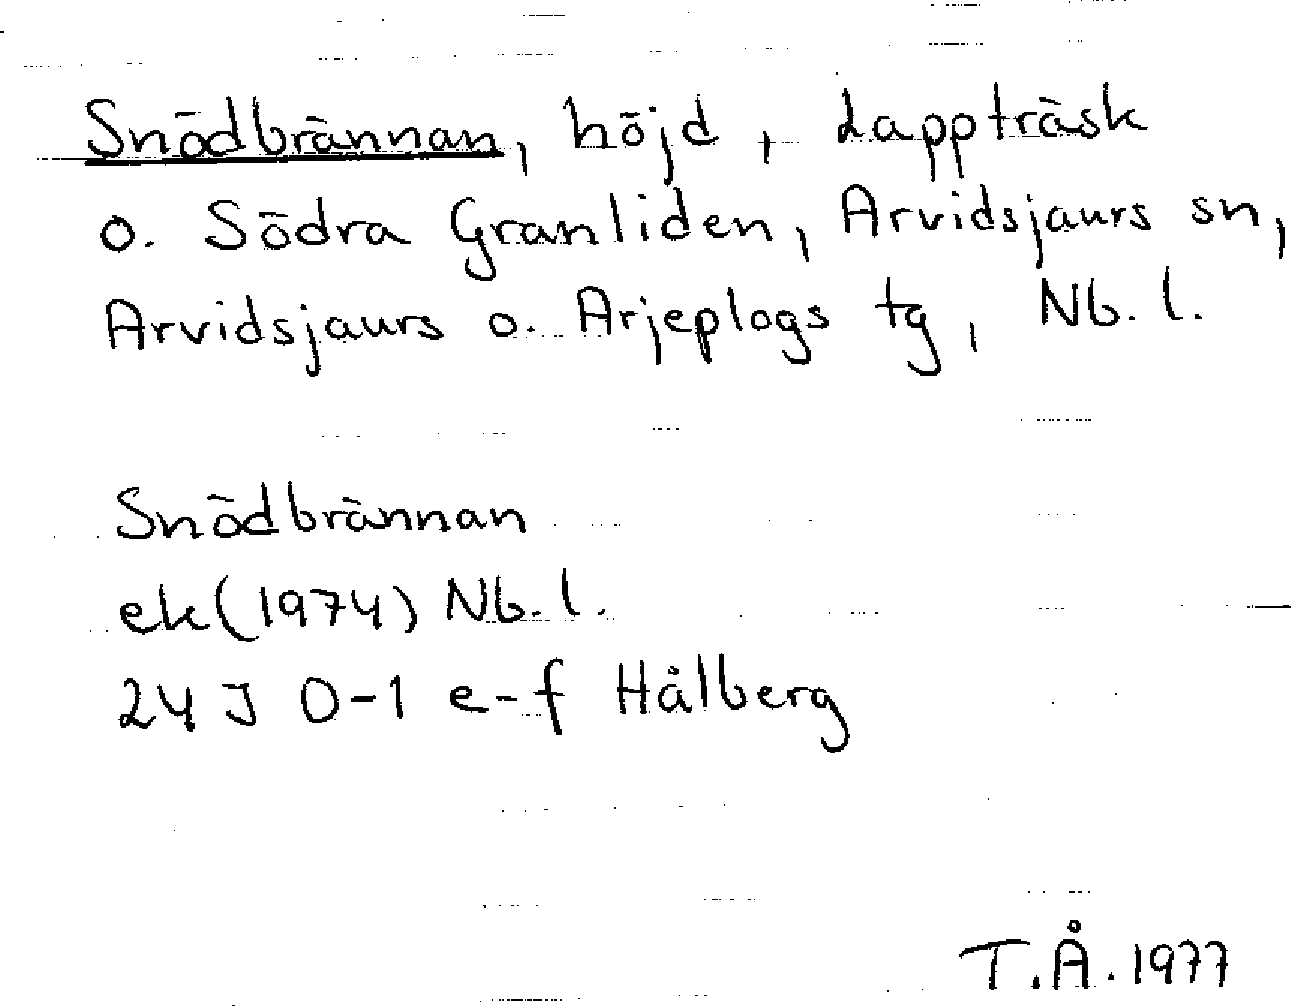 Snödbrännan, höjd, Lappträsk
o. Södra Granliden, Arvidsjaurs sn,
Arvidsjaurs o. Arjeplogs tg, Nb. l.
Snödbrännan
ek (1974) Nb. l.
24 J 0-1 e-f Hålberg
T.Å. 1977